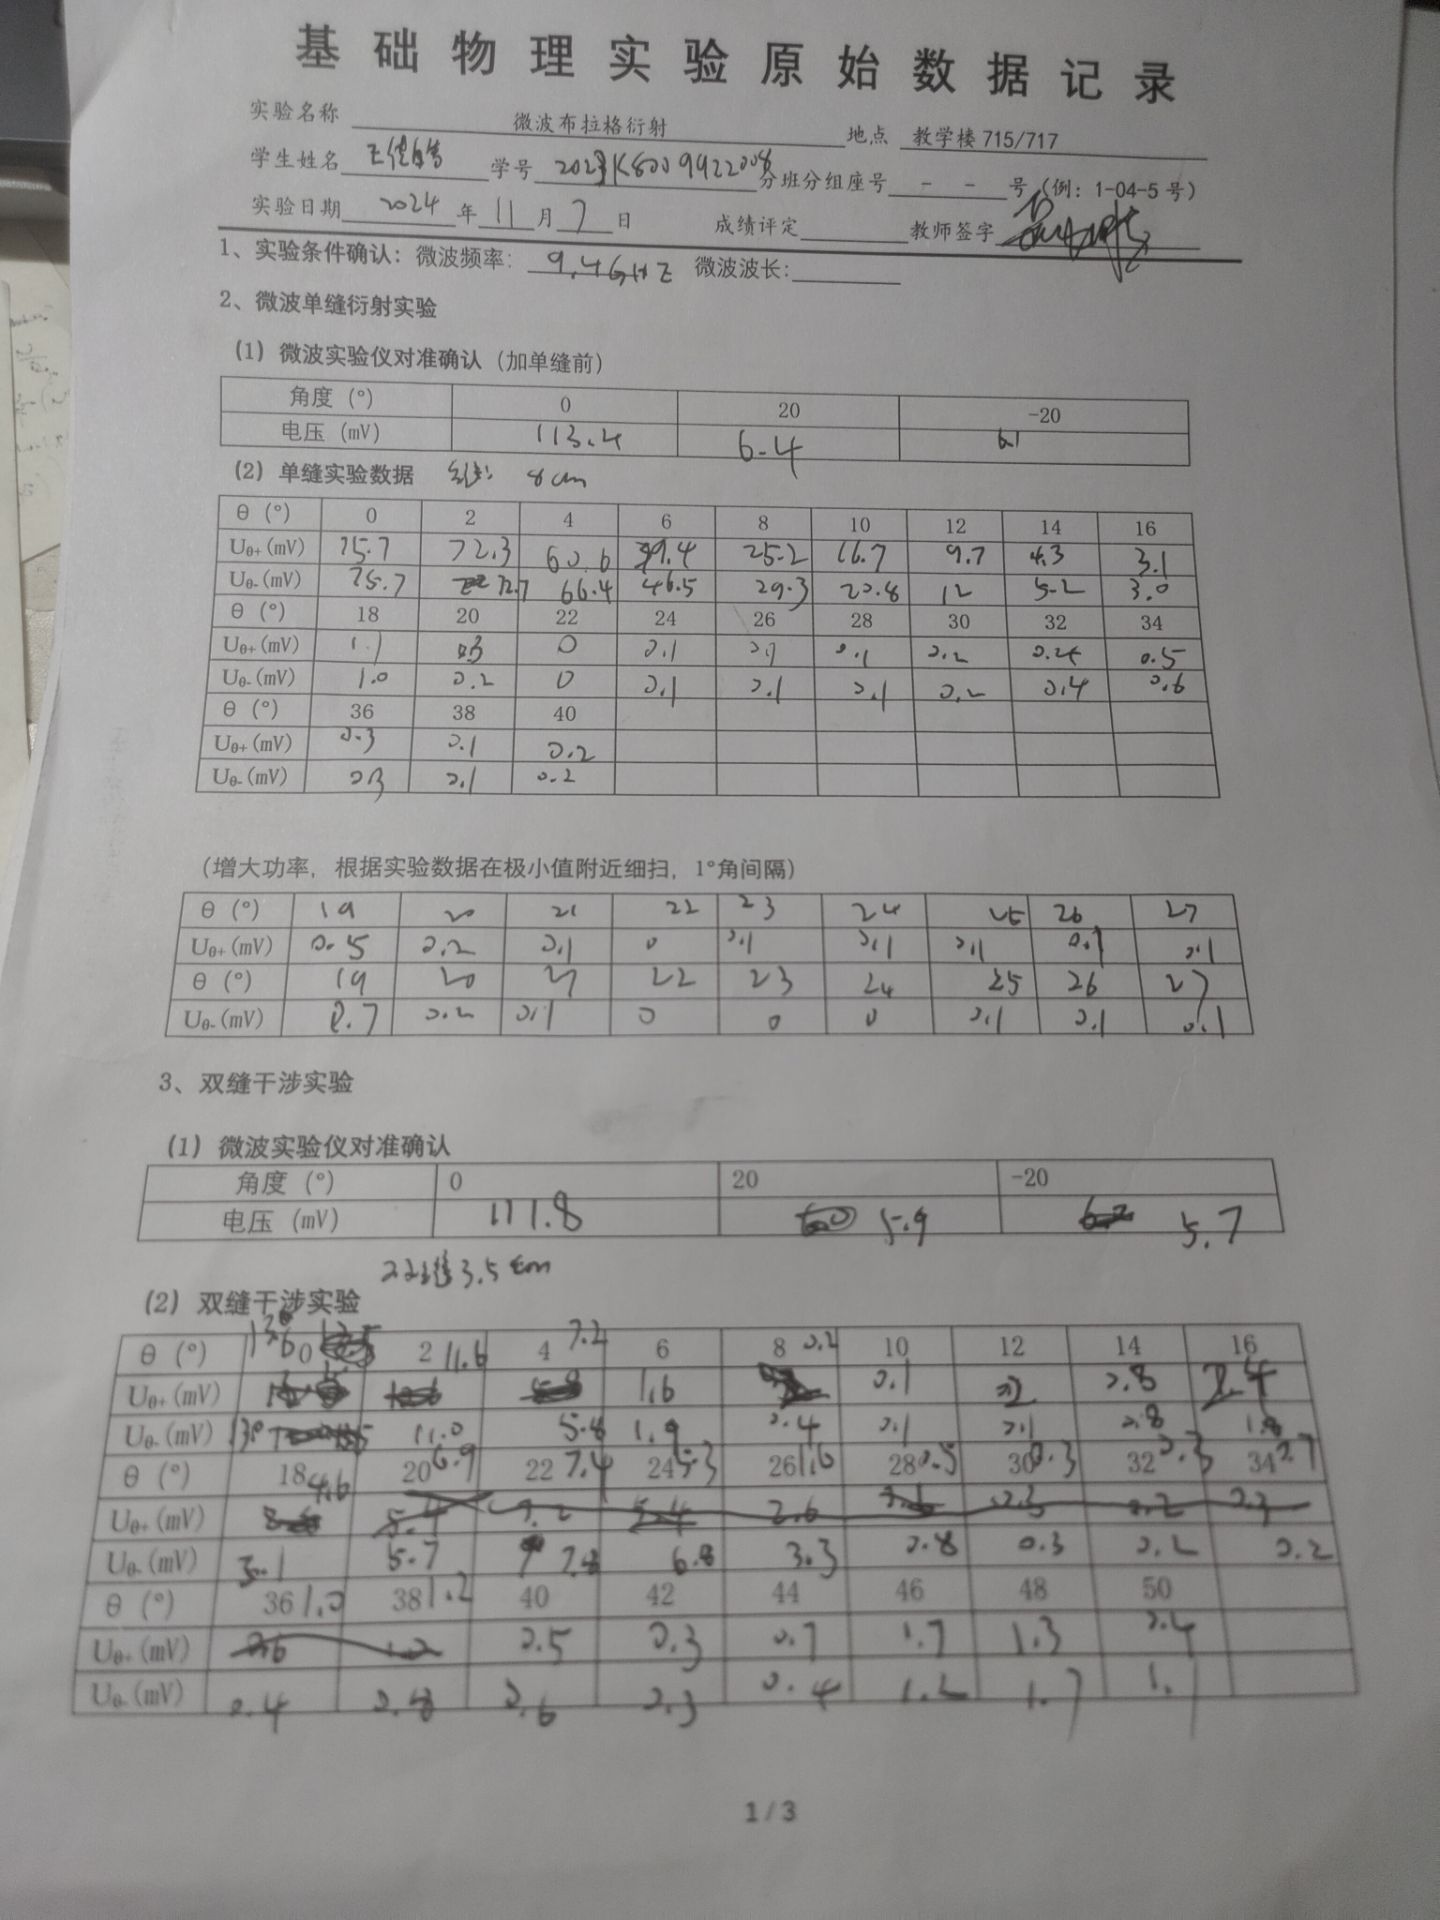 基础物理实验原始数据记录
实验名称 微波布拉格衍射 地点 教学楼 715/717
学生姓名 学号 2023K8009922008 分班分组座号 - - 号 (例: 1-04-5 号)
实验日期 2024 年 11 月 7 日 成绩评定 教师签字
1、实验条件确认: 微波频率: 9.4GHz 微波波长:
2、微波单缝衍射实验
(1) 微波实验仪对准确认 (加单缝前)
角度 (°) 0 20 -20
电压 (mV) 113.4 6.4 6.1
(2) 单缝实验数据 8cm
θ (°) 0 2 4 6 8 10 12 14 16
Uθ+(mV) 75.7 72.3 60.6 39.4 25.2 16.7 9.7 4.3 3.1
Uθ-(mV) 75.7 72.7 66.4 46.5 29.3 20.8 12 5.2 3.0
θ (°) 18 20 22 24 26 28 30 32 34
Uθ+(mV) 1.1 0.3 0 0.1 0.1 0.1 0.2 0.4 0.5
Uθ-(mV) 1.0 0.2 0 0.1 0.1 0.1 0.2 0.4 0.6
θ (°) 36 38 40
Uθ+(mV) 0.3 0.1 0.2
Uθ-(mV) 0.3 0.1 0.2
(增大功率, 根据实验数据在极小值附近细扫, 1°角间隔)
θ (°) 19 20 21 22 23 24 25 26 27
Uθ+(mV) 0.5 0.2 0.1 0 0.1 0.1 0.1 0.1 0.1
θ (°) 19 20 21 22 23 24 25 26 27
Uθ-(mV) 0.7 0.2 0.1 0 0 0 0.1 0.1 0.1
3、双缝干涉实验
(1) 微波实验仪对准确认
角度 (°) 0 20 -20
电压 (mV) 111.8 5.9 5.7
双缝3.5cm
(2) 双缝干涉实验
θ (°) 0 2 11.6 4 7.2 6 8 0.2 10 12 14 16
Uθ+(mV) 1.6 0.1 0.2 0.8 2.4
Uθ-(mV) 11.0 5.8 1.9 0.4 0.1 0.1 0.8 1.8
θ (°) 18 4.6 20 6.9 22 7.4 24 5.3 26 1.6 28 0.5 30 0.3 32 0.3 34 0.7
Uθ+(mV) 5.4 7.2 5.4 2.6 0.3 0.2 0.3
Uθ-(mV) 3.1 5.7 7.8 6.8 3.3 0.8 0.3 0.2 0.2
θ (°) 36 1.0 38 1.2 40 42 44 46 48 50
Uθ+(mV) 0.6 1.2 0.5 0.3 0.7 1.7 1.3 0.4
Uθ-(mV) 0.4 0.8 0.6 0.3 0.4 1.2 1.7 1.1
1 / 3